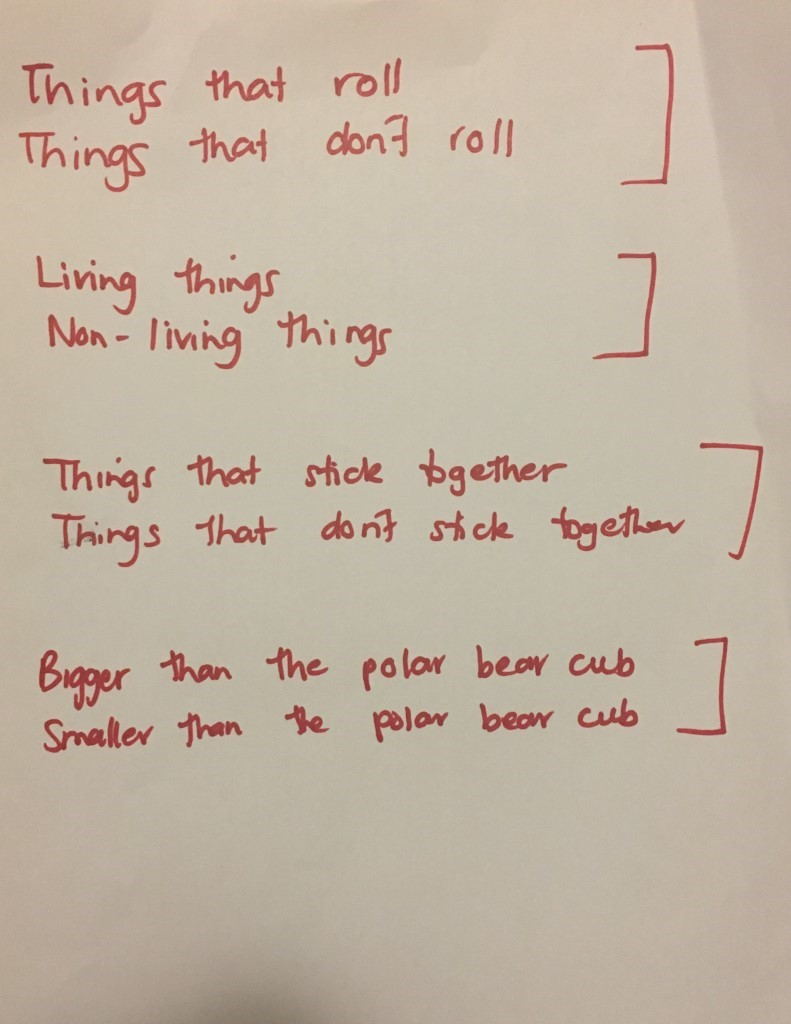 Things that roll
Things that don't roll
Living things
Non-living things
Things that stick together
Things that don't stick together
Bigger than the polar bear cub
Smaller than the polar bear cub